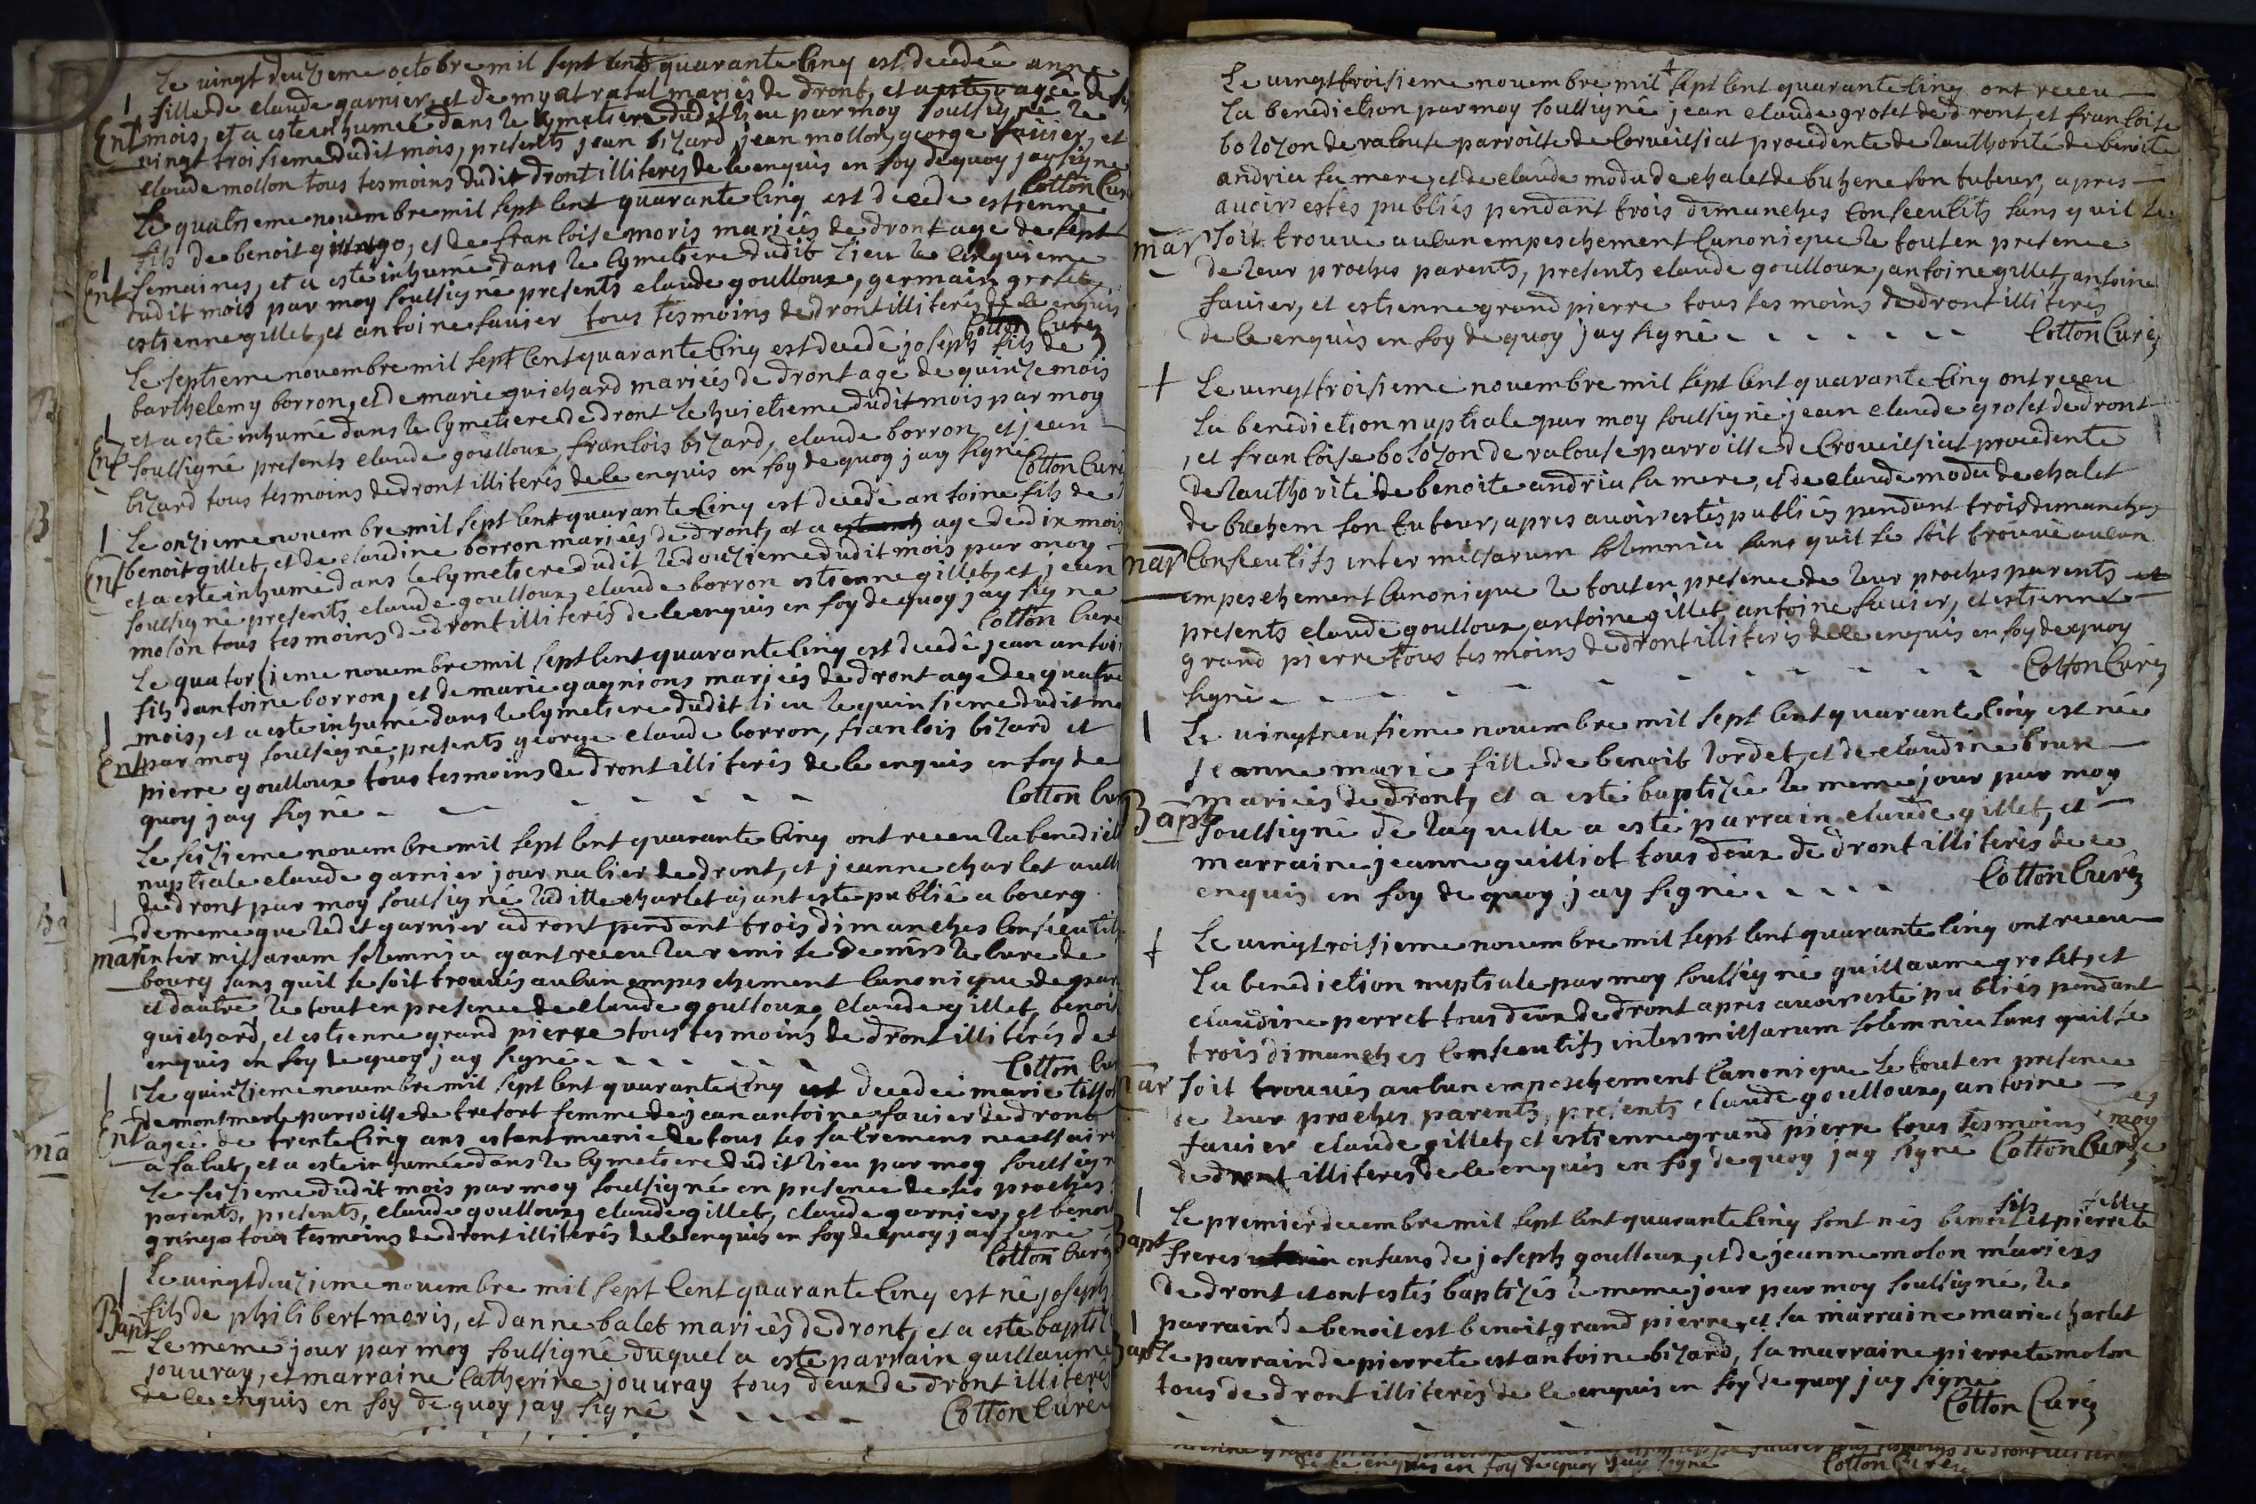 Le vingt deuzieme octobre mil sept cent quarante cinq est decedée anne
fille de claude garnier, et de myat ratal mariés de dront, et a esté agée de
Ent
mois, et a este inhumée dans le cymetiere dudit lieu par moy soussigné le
vingt troisieme dudit mois, presents jean bizard, jean mollon, george fauier, et
claude mollon tous tesmoins dudit dront illiterés de ce enquis en foy de quoy jay signé
Cotton Curé
Le quatrieme novembre mil sept cent quarante cinq est decede estienne
fils de benoit gringo, et de francoise moris mariés de dront age de sept
Ent
semaines, et a esté inhumé dans le cymetiere dudit lieu le cinquieme
dudit mois par moy soussigne presents claude goulloux, germain groset,
estienne gillet, et antoine fauier tous tesmoins de dront illiterés de ce enquis
Cotton Curéz
Le septieme novembre mil sept cent quarante cinq est decedé joseph fils de
barthelemy borron, et de marie guichard mariés de dront age de quinze mois
et a esté inhumé dans le cymetiere de dront le huictieme dudit mois par moy
Ent
soussigné presents claude goulloux, francois bizard, claude borron et jean
bizard tous tesmoins de dront illiterés de ce enquis en foy de quoy jay signé
Cotton Curé
Le onzieme novembre mil sept cent quarante cinq est decedé antoine fils de
benoit gillet, et de claudine borron mariés de dront, et a age de dix mois
Ent
et a este inhumé dans le cymetiere dudit le douzieme dudit mois par moy
soussigné presents claude goulloux, claude borron estienne gillet, et jean
molon tous tesmoins de dront illiterés de ce enquis en foy de quoy jay signe
Cotton Cure
Le quatorzieme novembre mil sept cent quarante cinq est decedé jean antoi
fils dantoine borron, et de marie gagnions mariés de dront age de quatre
mois, et a este inhumé dans le cymetiere dudit lieu le quinsieme dudit mo
Ent
par moy soussigné, presents george claude borron, francois bizard et
pierre goulloux tous tesmoins de dront illiterés de ce enquis en foy de
quoy jay signé
Cotton Cur
Le seizieme novembre mil sept cent quarante cinq ont receu la benedict
nuptiale claude garnier journalier de dront, et jeanne charlet auss
de dront par moy soussigné ladite charlet ajant esté publié a bourg
de meme que ledit garnier a dront pendant trois dimanches consecutifs
mar
inter missarum solemnia ajant receu la remise de mrs le cure de
bourg sans quil se soit trouvés aucun empeschement canonique de part
et dautre le tout en presence de claude goulloux, claude gillet, benoit
guichard, et estienne grand pierre tous tesmoins de dront illiterés de ce
enquis en foy de quoy jay signé
Cotton Cur
Le quinzieme novembre mil sept cent quarante cinq est decedée marie tisso
de montmerle parroisse de tresort femme de jean antoine fauier de dront
Ent
agée de trente cinq ans estant munie de tous les sacremens necessaire
a salut, et a este inhumée dans le cymetiere dudit lieu par moy soussign
le seizieme dudit mois par moy soussigné en presence de ses proches
parents, presents, claude goulloux, claude gillet, claude garnier, et benoit
gringo tous tesmoins de dront illiterés de ce enquis en foy de quoy jay signé
Cotton Curéz
Le vingt deuzieme novembre mil sept cent quarante cinq est né joseph
fils de philibert moris, et danne balet mariés de dront, et a este baptiz
Bapt
Le meme jour par moy soussigné duquel a este parrain guillaume
jouuray, et marraine catherine jouuray tous deux de dront illiterés
de ce enquis en foy de quoy jay signé
Cotton Curé
Le vingt troisieme novembre mil sept cent quarante cinq ont receu
la benediction par moy soussigné jean claude groset de dront, et francoise
bolozon de valouse parroisse de Corveissiat procedente de lauthorité de benoite
andria sa mere, et de claude modu de chalet de buhene son tuteur, apres
avoir estés publiés pendant trois dimanches consecutifs sans quil se
mar
soit trouvé aucun empeschement canonique le tout en presence
de leur proches parents, presents claude goulloux, antoine gillet, antoine
fauier, et estienne grand pierre tous tesmoins de dront illiterés
de ce enquis en foy de quoy jay signé
Cotton Curéz
Le vingt troisieme novembre mil sept cent quarante cinq ont receu
la benediction nuptiale par moy soussigné jean claude groset de dront
, et francoise bolozon de valouse parroisse de Croveissiat procedente
de lauthorité de benoite andria sa mere, et de claude modu de chalet
de buchem son tuteur, apres avoir estés publiés pendant trois dimanches
mar
consecutifs inter missarum solemnia sans quil se soit trouvé aucun
empeschement canonique le tout en presence de leur proches parents et
presents claude goulloux, antoine gillet, antoine fauier, et estienne
grand pierre tous tesmoins de dront illiterés de ce enquis en foy de quoy
signé
Cotton Curéz
Le vingt neufieme novembre mil sept cent quarante cinq est née
jeanne marie fille de benoit lordet, et de claudine brun
mariés de dront, et a esté baptizée le meme jour par moy
Bapt
soussigné de laquelle a esté parrain claude gillet, et
marraine jeanne guilliot tous deux de dront illiterés de ce
enquis en foy de quoy jay signé
Cotton Curéz
Le vingtroisieme novembre mil sept cent quarante cinq ont receu
la benediction nuptiale par moy soussigné guillaume groset, et
claudine perret tous deux de dront apres avoir esté publiés pendant
trois dimanches consecutifs inter missarum solemnia sans quil se
mar
soit trouvés aucun empeschement canonique le tout en presence
de leur proches parents, presents claude goulloux, antoine
fauier claude gillet, et estienne grand pierre tous tesmoins
de dront illiterés de ce enquis en foy de quoy jay signé Cotton Curéz
fils fille
Le premier decembre mil sept cent quarante cinq sont nés benoit et pierrete
Bapt
freres enfans de joseph goulloux, et de jeanne molon mariers
de dront et ont estés baptizés le meme jour par moy soussigné, le
parrain de benoit est benoit grand pierre, et la marraine marie charlet
Bapt
Le parrain de pierrete est antoine bizard, la marraine pierrete molon
tous de dront illiterés de ce enquis en foy de quoy jay signe
Cotton Curéz
de ce enquis en foy de quoy jay signé
Cotton Curé